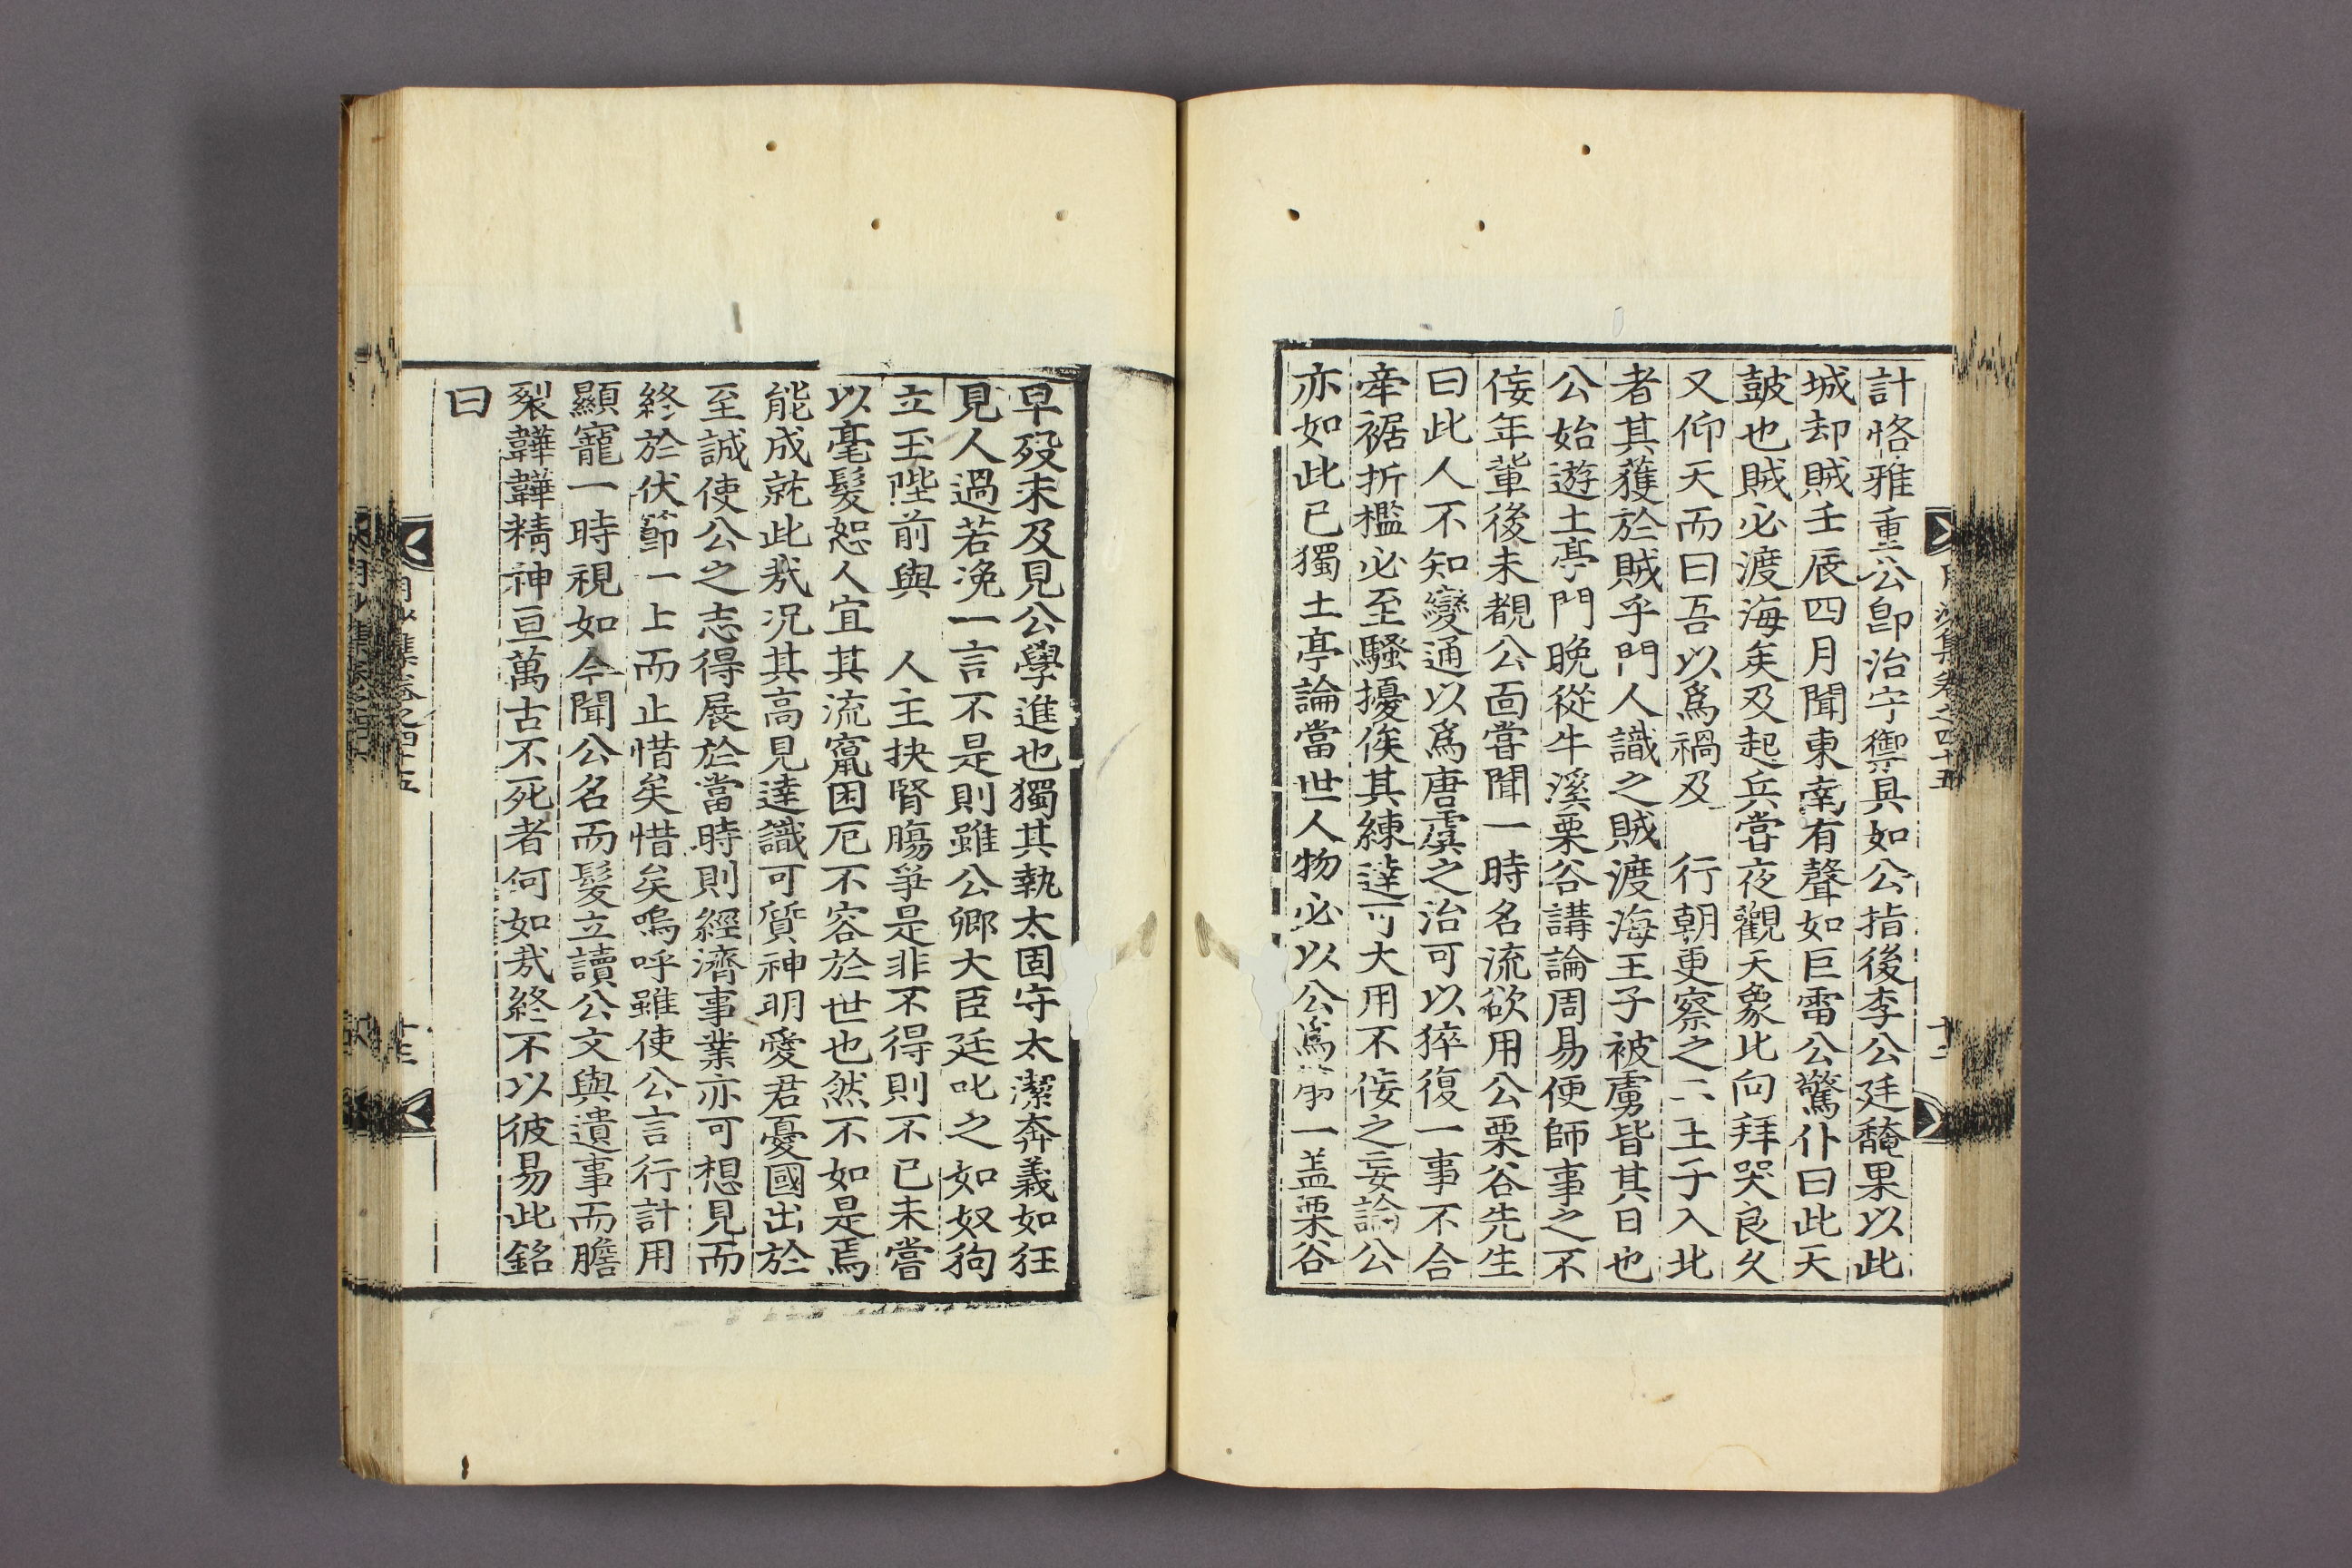 計恪雅重公卽治守禦具如公指後李公廷馣果以此
城却賊壬辰四月聞東南有聲如巨雷公驚仆曰此天
鼓也賊必渡海矣及起兵嘗夜觀天象北向拜哭良久
又仰天而曰吾以爲禍及 行朝更察之二王子入北
者其獲於賊乎門人識之賊渡海王子被虜皆其日也
公始遊土亭門晩從牛溪栗谷講論周易便師事之不
佞年輩後未覩公面嘗聞一時名流欲用公栗谷先生
曰此人不知變通以爲唐虞之治可以猝復一事不合
牽裾折檻必至騷擾俟其練達可大用不佞之妄論公
亦如此已獨土亭論當世人物必以公爲第一盖栗谷
月沙集卷之四十五 十二
早歿未及見公學進也獨其執太固守太潔奔義如狂
見人過若浼一言不是則雖公卿大臣廷叱之如奴狗
立玉陛前與 人主抉腎腸爭是非不得則不已未嘗
以毫髮恕人宜其流竄困厄不容於世也然不如是焉
能成就此哉況其高見達識可質神明愛君憂國出於
至誠使公之志得展於當時則經濟事業亦可想見而
終於伏節一上而止惜矣惜矣嗚呼雖使公言行計用
顯寵一時視如今聞公名而髮立讀公文與遺事而膽
裂韡韡精神亘萬古不死者何如哉終不以彼易此銘
曰
月沙集卷之四十五 十三